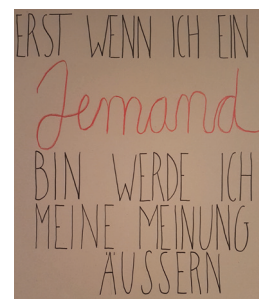 ERST WENN ICH EIN
Jemand
BIN WERDE ICH
MEINE MEINUNG
ÄUSSERN